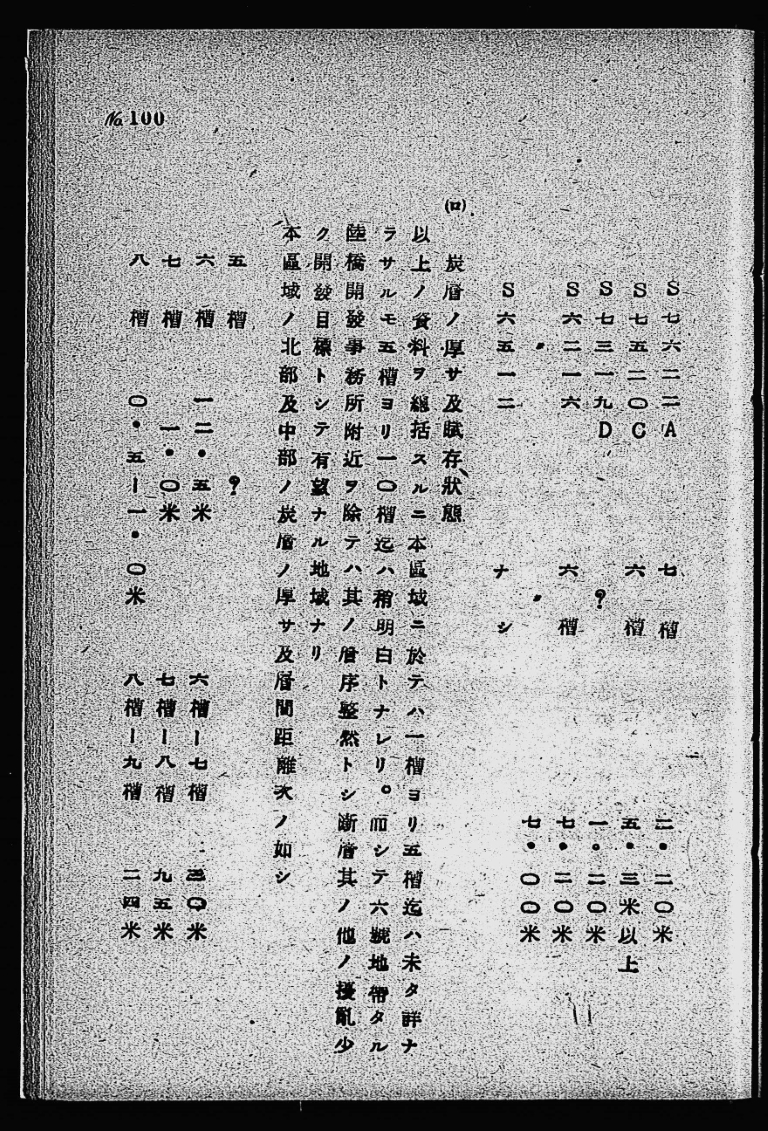 S七六二二A 七槽 二・二〇米
S七五二〇C 六槽 五・三米以上
S七三一九D ? 一・二〇米
S六二一六 六槽 七・二〇米
〃 〃 七・〇〇米
S六五一二 ナシ
(ロ) 炭層ノ厚サ及賦存狀態
以上ノ資料ヲ總括スルニ本區域ニ於テハ一槽ヨリ五槽迄ハ未タ詳ナ
ラサルモ五槽ヨリ一〇槽迄ハ稍明白トナレリ。而シテ六號地帶タル
陸橋開發事務所附近ヲ除テハ其ノ層序整然トシ斷層其ノ他ノ擾亂少
ク開發目標トシテ有望ナル地域ナリ
本區域ノ北部及中部ノ炭層ノ厚サ及層間距離次ノ如シ
五槽 ?
六槽 一二・五米 六槽ー七槽 三〇米
七槽 一・〇米 七槽ー八槽 九五米
八槽 〇・五ー一・〇米 八槽ー九槽 二四米
№100